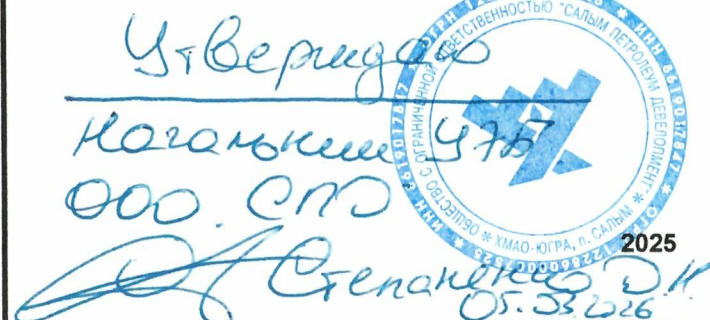 Утверждаю
Начальник УТБ
ООО СПД
Степаненко Д.Н.
05.03.2026
2025
ОБЩЕСТВО С ОГРАНИЧЕННОЙ ОТВЕТСТВЕННОСТЬЮ "САЛЫМ ПЕТРОЛЕУМ ДЕВЕЛОПМЕНТ"
* ХМАО-ЮГРА, п. САЛЫМ *
* ИНН 8619017847 * ОГРН 1228600007525 * ИНН 8619017847